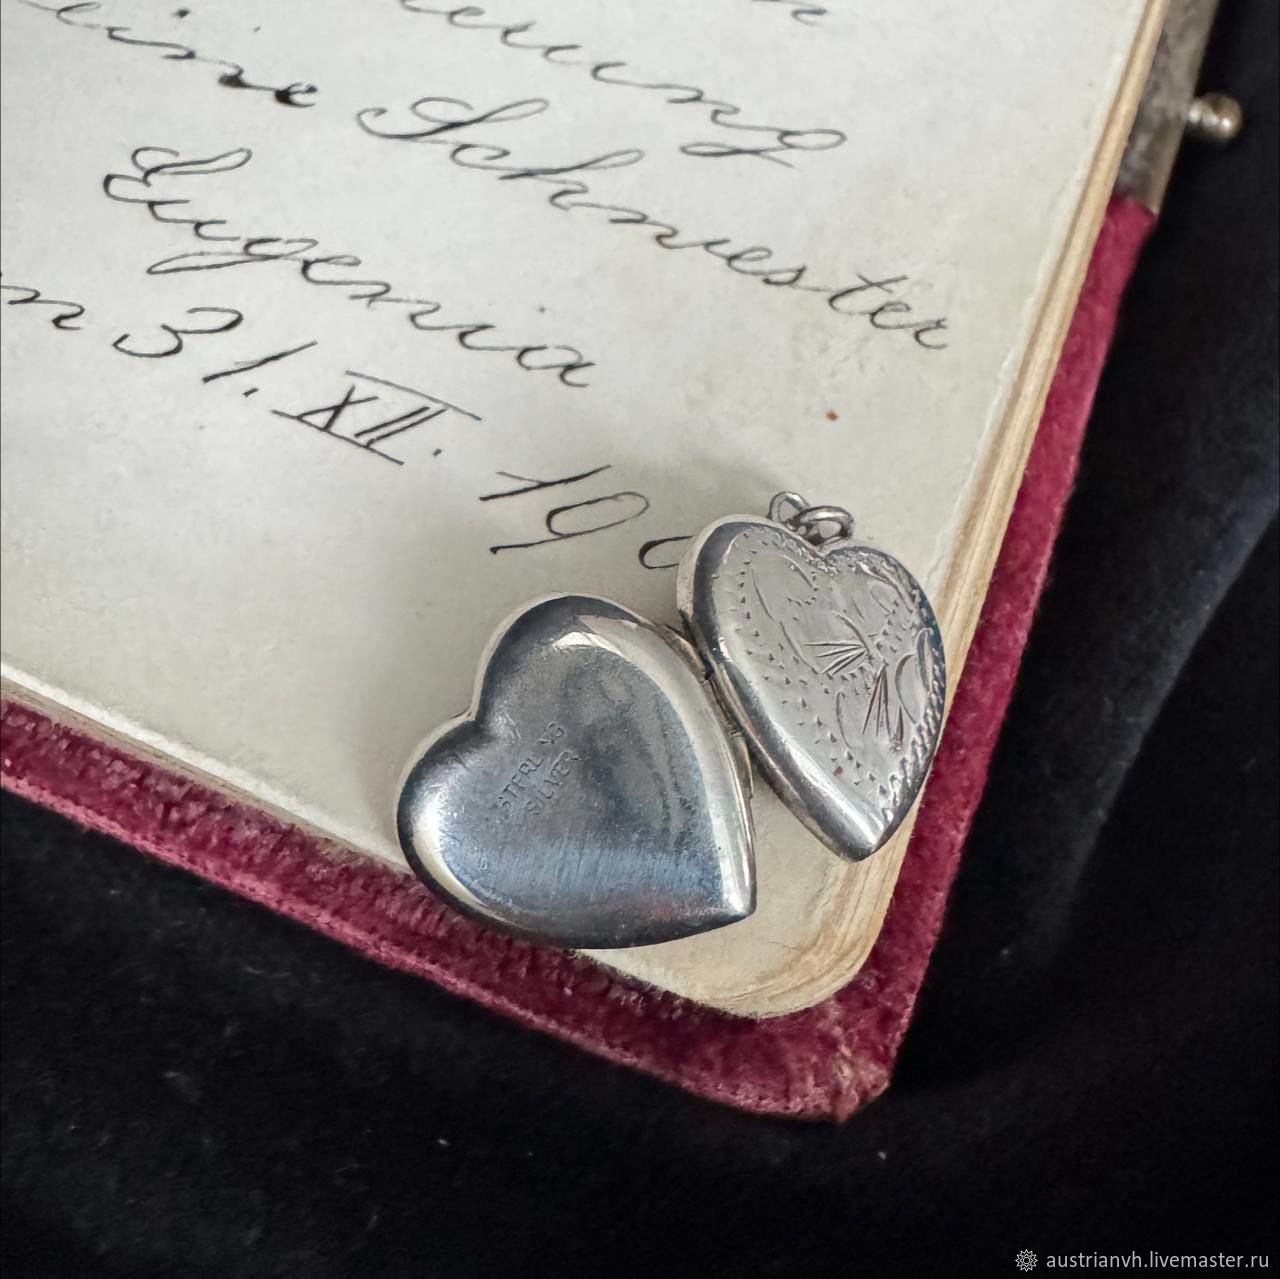 Schwester
Eugenia
31. XII. 190
STERLING
SILVER
austrianvh.livemaster.ru